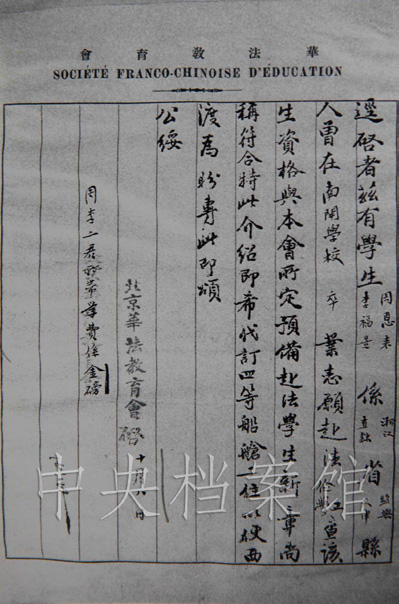 華法教育會
SOCIÉTÉ FRANCO-CHINOISE D'ÉDUCATION
逕啓者茲有學生周恩來李福景係浙江直隸省紹興天津縣
人曾在南開學校卒業志願赴法查該
生資格與本會所定預備赴法學生新章尚
稱符合特此介紹即希代訂四等船艙二位以便西
渡爲盼專此即頌
公綏
北京華法教育會啓 十月八日
周李二君費係金磅
中央档案馆